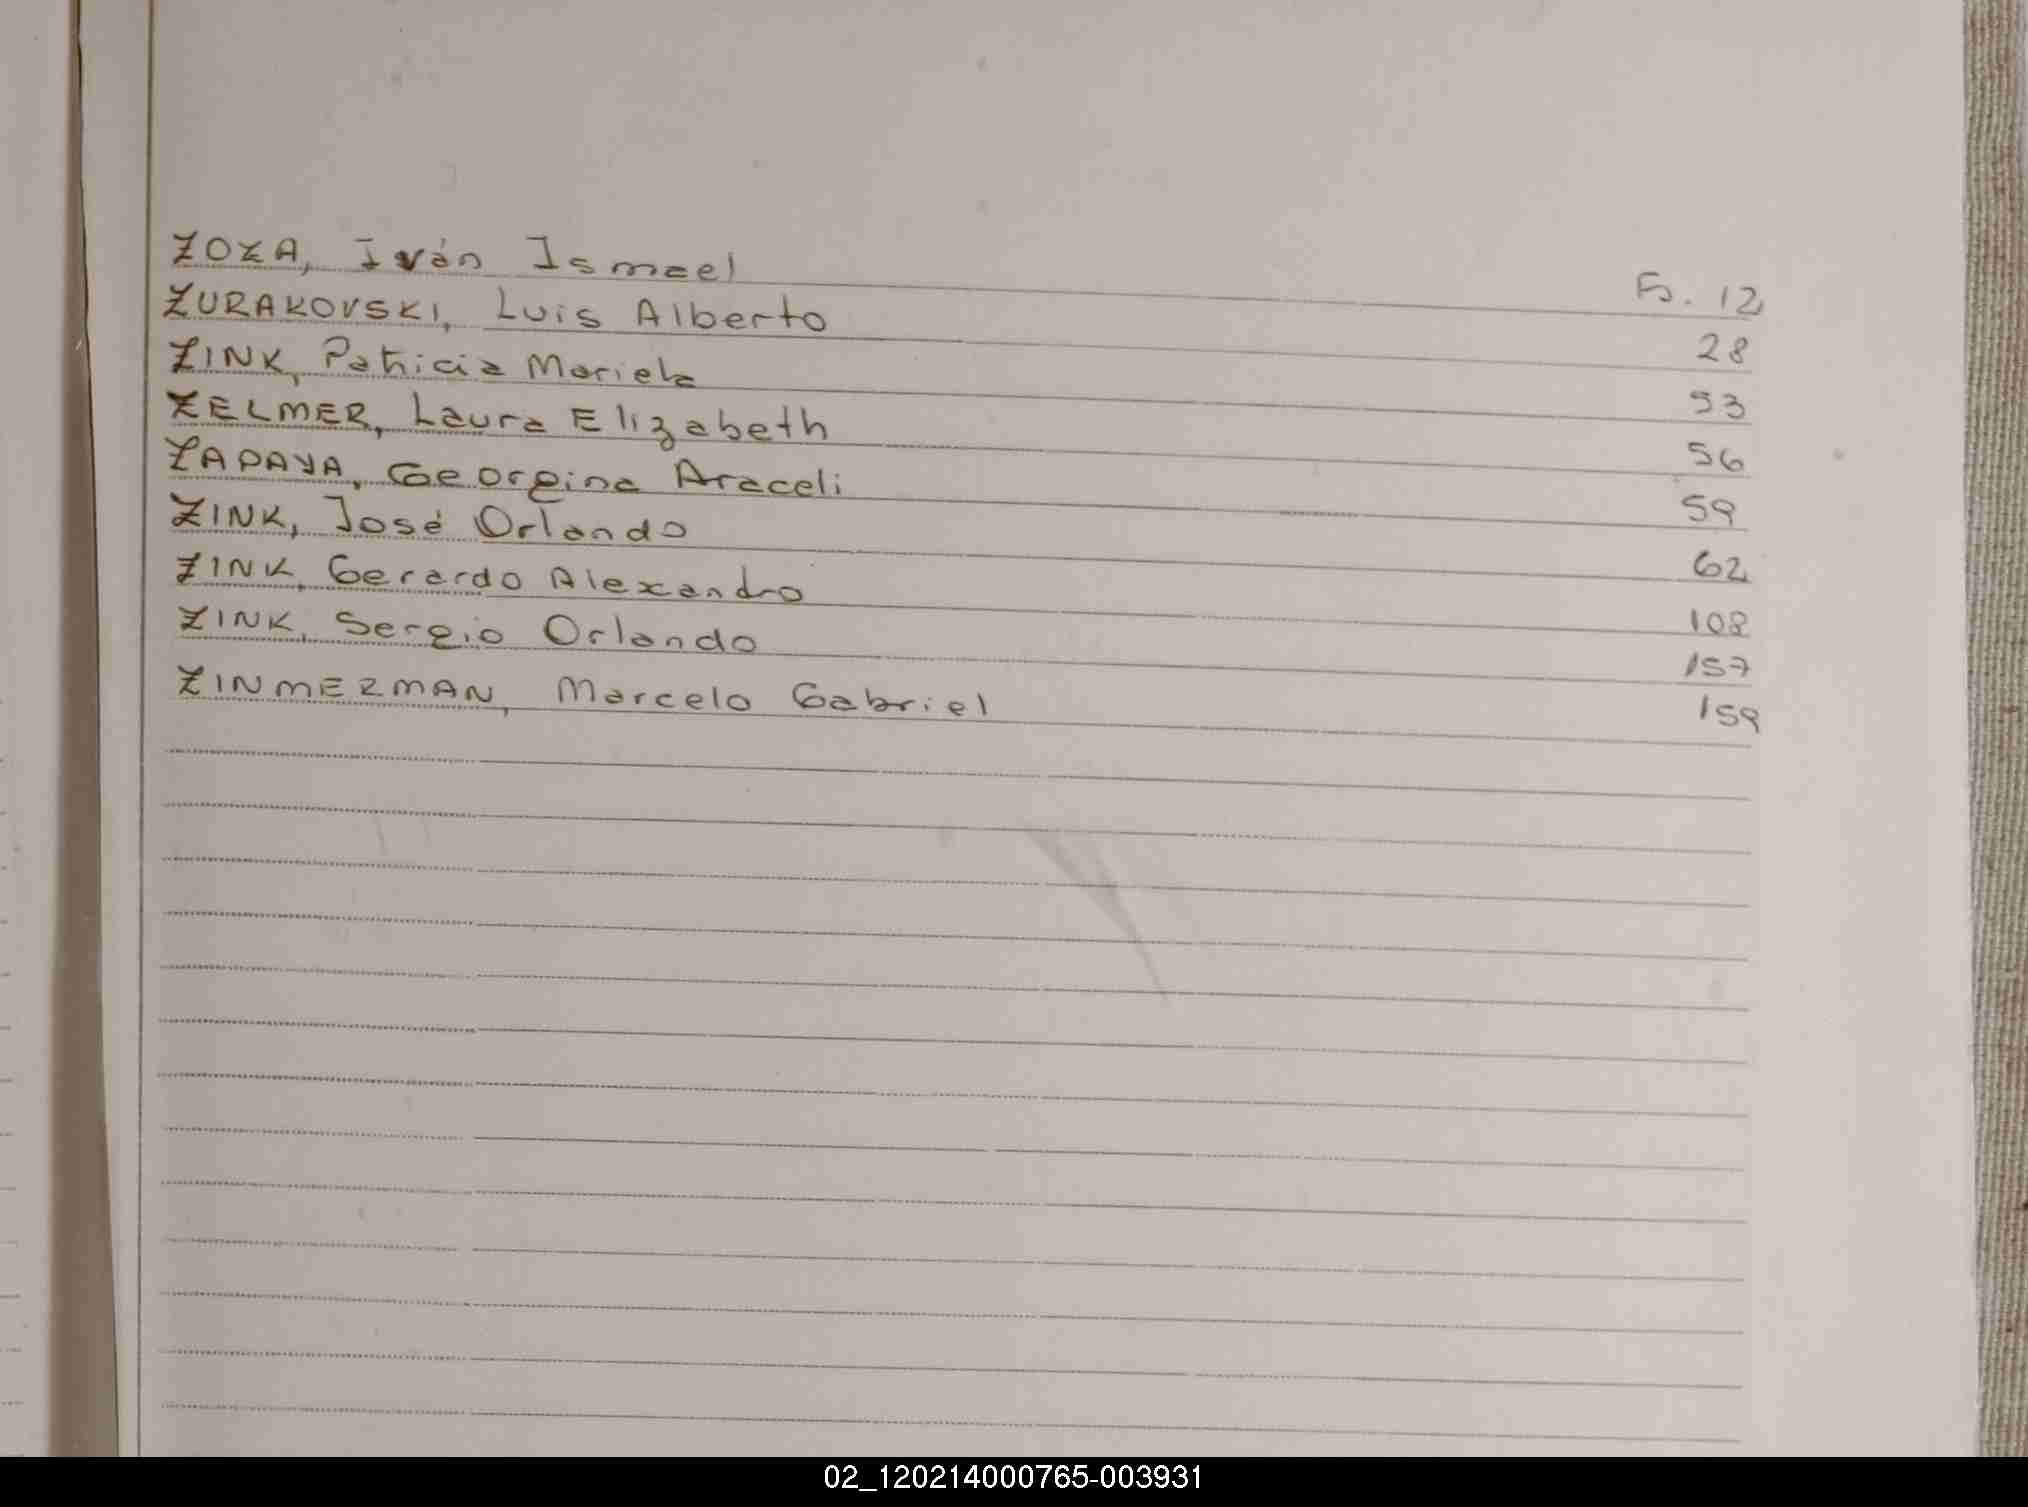 ZOZA, Iván Ismael Fo. 12
ZURAKOVSKI, Luis Alberto 28
ZINK, Patricia Mariela 53
ZELMER, Laura Elizabeth 56
ZAPAYA, Georgina Araceli 59
ZINK, José Orlando 62
ZINK, Gerardo Alexandro 108
ZINK, Sergio Orlando 157
ZINMERMAN, Marcelo Gabriel 159
02_120214000765-003931